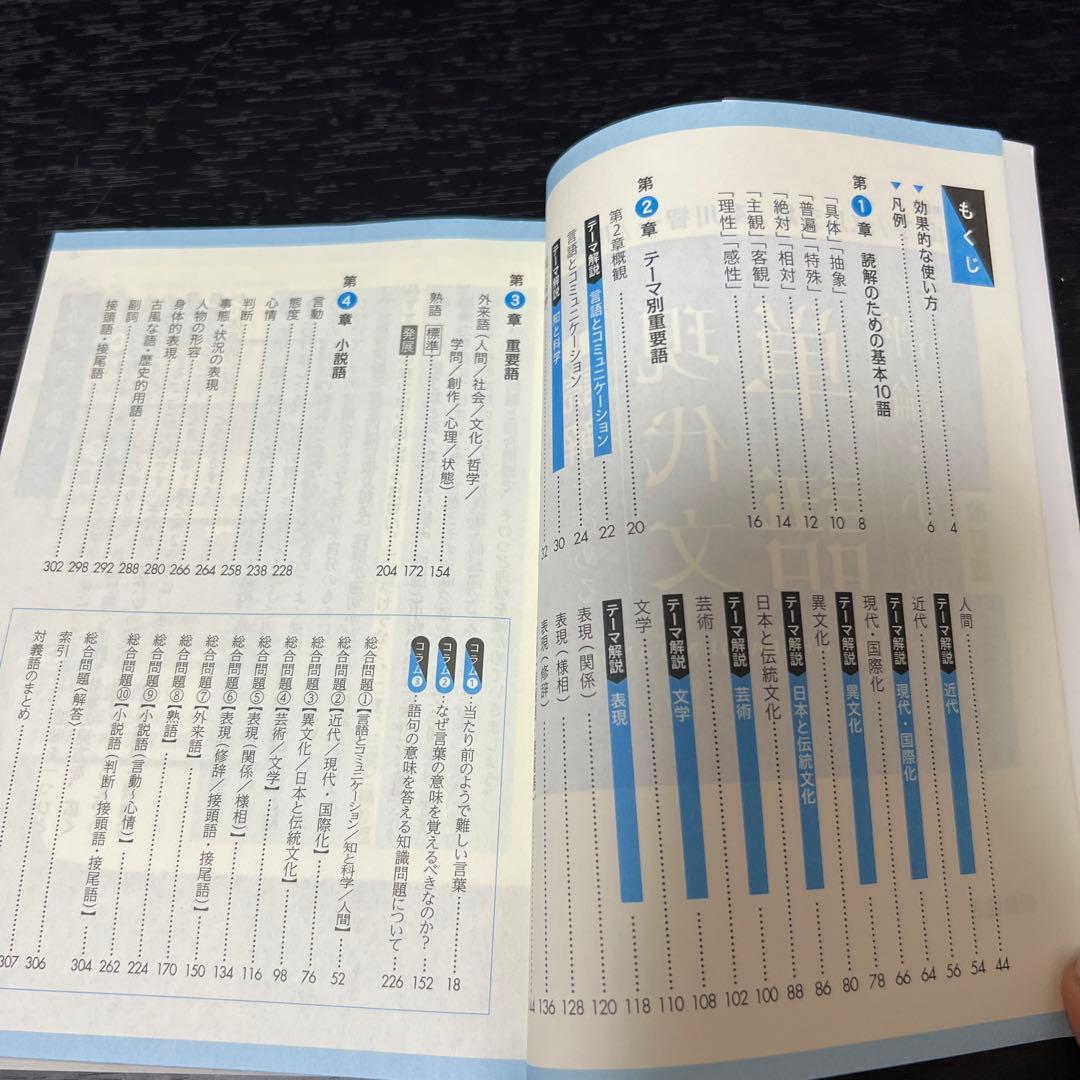 もくじ
▼効果的な使い方 4
▼凡例 6
第1章 読解のための基本10語
「具体」「抽象」 8
「普遍」「特殊」 10
「絶対」「相対」 12
「主観」「客観」 14
「理性」「感性」 16
第2章 テーマ別重要語
第2章概観 20
テーマ解説 言語とコミュニケーション 22
言語とコミュニケーション 24
テーマ解説 知と科学 30
32
人間 44
テーマ解説 近代 54
近代 56
テーマ解説 現代・国際化 64
現代・国際化 66
テーマ解説 異文化 78
異文化 80
テーマ解説 日本と伝統文化 86
日本と伝統文化 88
テーマ解説 芸術 100
芸術 102
テーマ解説 文学 108
文学 110
テーマ解説 表現 118
表現(関係) 120
表現(様相) 128
表現(修辞) 136
第3章 重要語
外来語(人間/社会/文化/哲学/
学問/創作/心理/状態) 154
熟語 標準 172
発展 204
第4章 小説語
言動 228
態度 238
心情 258
判断 264
事態・状況の表現 266
人物の形容 280
身体的表現 288
古風な語・歴史的用語 292
副詞 298
接頭語・接尾語 302
コラム1 当たり前のようで難しい言葉 18
コラム2 なぜ言葉の意味を覚えるべきなのか? 152
コラム3 語句の意味を答える知識問題について 226
総合問題①【言語とコミュニケーション/知と科学/人間】 52
総合問題②【近代/現代・国際化】 76
総合問題③【異文化/日本と伝統文化】 98
総合問題④【芸術/文学】 116
総合問題⑤【表現(関係/様相)】 134
総合問題⑥【表現(修辞/接頭語・接尾語)】 150
総合問題⑦【外来語】 170
総合問題⑧【熟語】 224
総合問題⑨【小説語(言動~心情)】 262
総合問題⑩【小説語(判断~接頭語・接尾語)】 304
総合問題(解答) 306
索引 307
対義語のまとめ